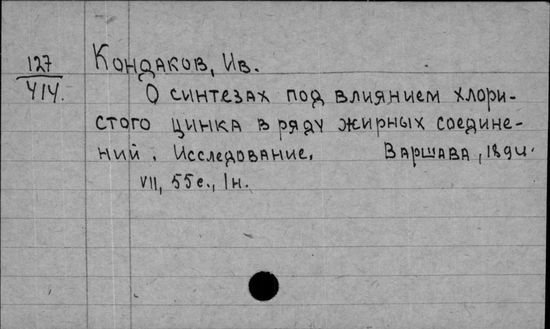 127
414.
Кондаков, Ив.
О синтезах под влиянием хлори-
стого цинка в ряду жирных соедине-
ний. Исследование. Варшава, 1894.
VII, 55с., 1н.